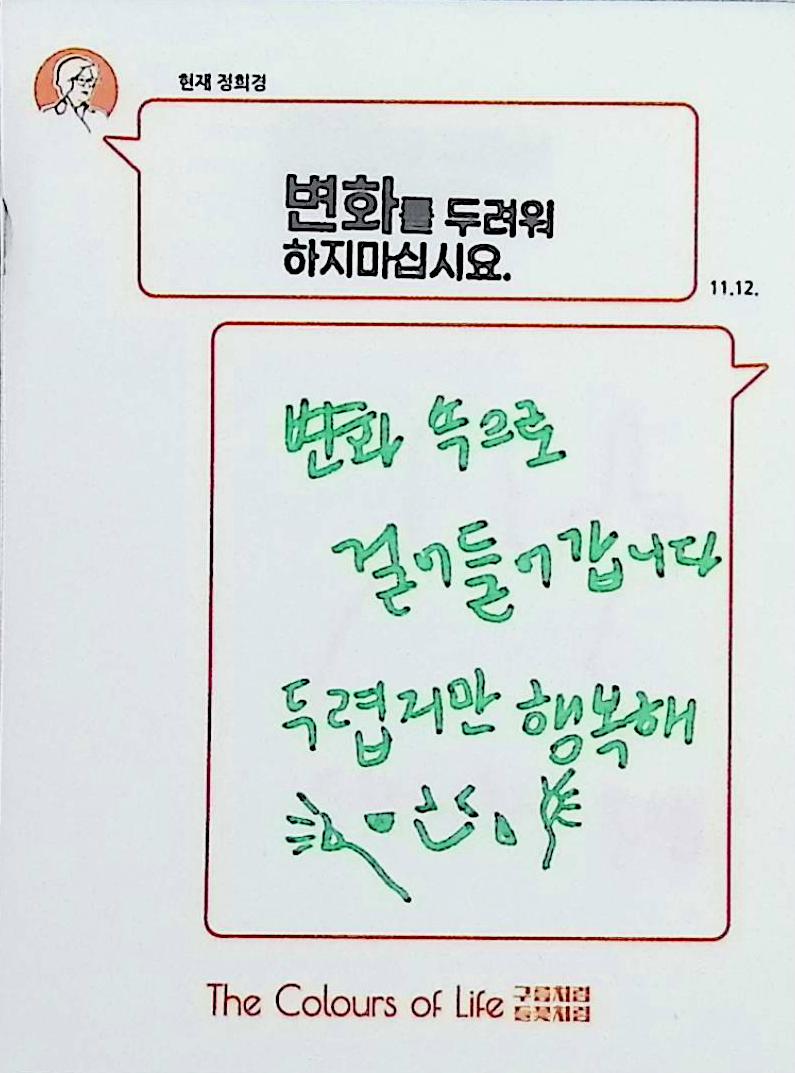 현재 정희경
변화를 두려워
하지마십시요.
11.12.
변화 쏙으로
걸어들어갑니다
두렵지만 행복해
The Colours of Life 구름처럼
들꽃처럼